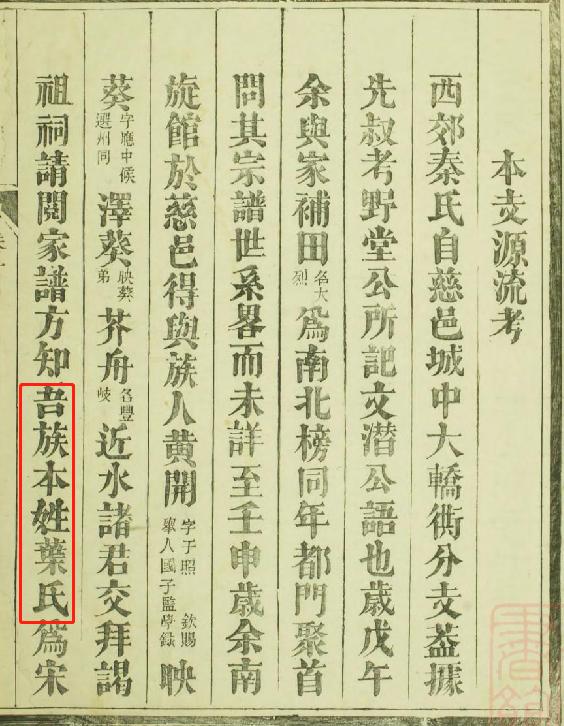 本支源流考
西郊秦氏自慈邑城中大轎衖分支葢據
先叔考野堂公所記文潛公語也歲戊午
余與家補田名大烈爲南北榜同年都門聚首
問其宗譜世系畧而未詳至壬申歲余南
旋館於慈邑得與族人黄開字于照 欽賜舉人國子監學錄映
葵字應中候選州同澤葵映葵弟芥舟名豐岐近水諸君交拜謁
祖祠請閱家譜方知吾族本姓葉氏爲宋